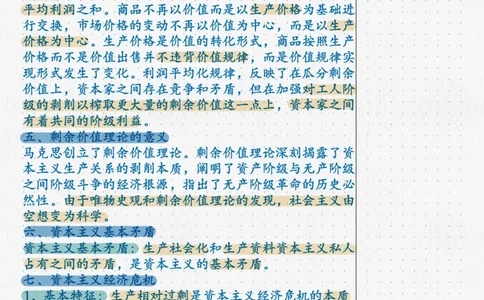 平均利润之和。商品不再以价值而是以生产价格为基础进
行交换，市场价格的变动不再以价值为中心，而是以生产
价格为中心。生产价格是价值的转化形式，商品按照生产
价格而不是价值出售并不违背价值规律，而是价值规律实
现形式发生了变化。利润平均化规律，反映了在瓜分剩余
价值上，资本家之间存在竞争和矛盾，但在加强对工人阶
级的剥削以榨取更大量的剩余价值这一点上，资本家之间
有着共同的阶级利益。
五、剩余价值理论的意义
马克思创立了剩余价值理论。剩余价值理论深刻揭露了资
本主义生产关系的剥削本质，阐明了资产阶级与无产阶级
之间阶级斗争的经济根源，指出了无产阶级革命的历史必
然性。由于唯物史观和剩余价值理论的发现，社会主义由
空想变为科学。
六、资本主义基本矛盾
资本主义基本矛盾：生产社会化和生产资料资本主义私人
占有之间的矛盾，是资本主义的基本矛盾。
七、资本主义经济危机
1、基本特征：生产相对过剩是资本主义经济危机的本质